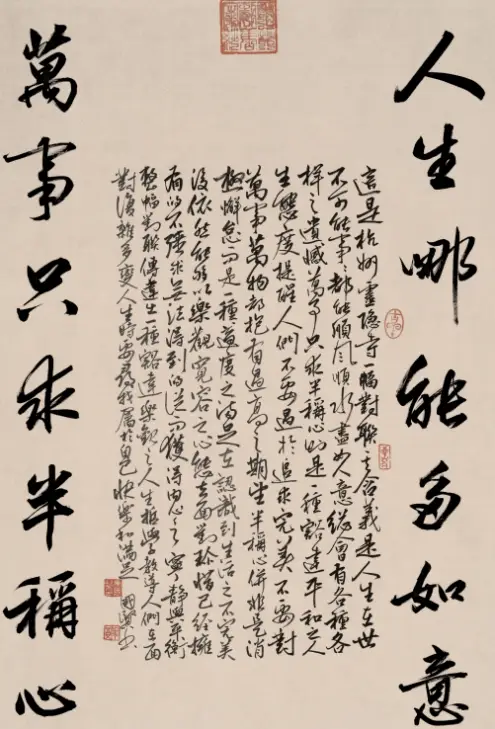 人生哪能多如意
這是杭州靈隱寺一幅對聯之含義是人生在世
不可能事事都能順風順水盡如人意總會有各種各
樣之遺憾萬事只求半稱心則是一種豁達平和之人
生態度提醒人們不要過於追求完美不要對
萬事萬物都抱有過高之期望半稱心併非是消
極懈怠而是一種適度之滿足在認識到生活之不完美
後依然能夠以樂觀寬容之心態去面對珍惜已經擁
有的不強求無法得到的從而獲得內心之寧靜與平衡
整幅對聯傳達出一種豁達樂觀之人生哲學教導人們在面
對復雜多變人生時要尋找屬於自己快樂和滿足
萬事只求半稱心